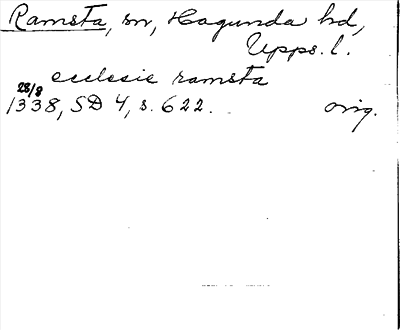 Ramsta, sn, Hagunda hd,
Upps. l.
ecclesie ramsta
28/8
1338, SD 4, s. 622. orig.